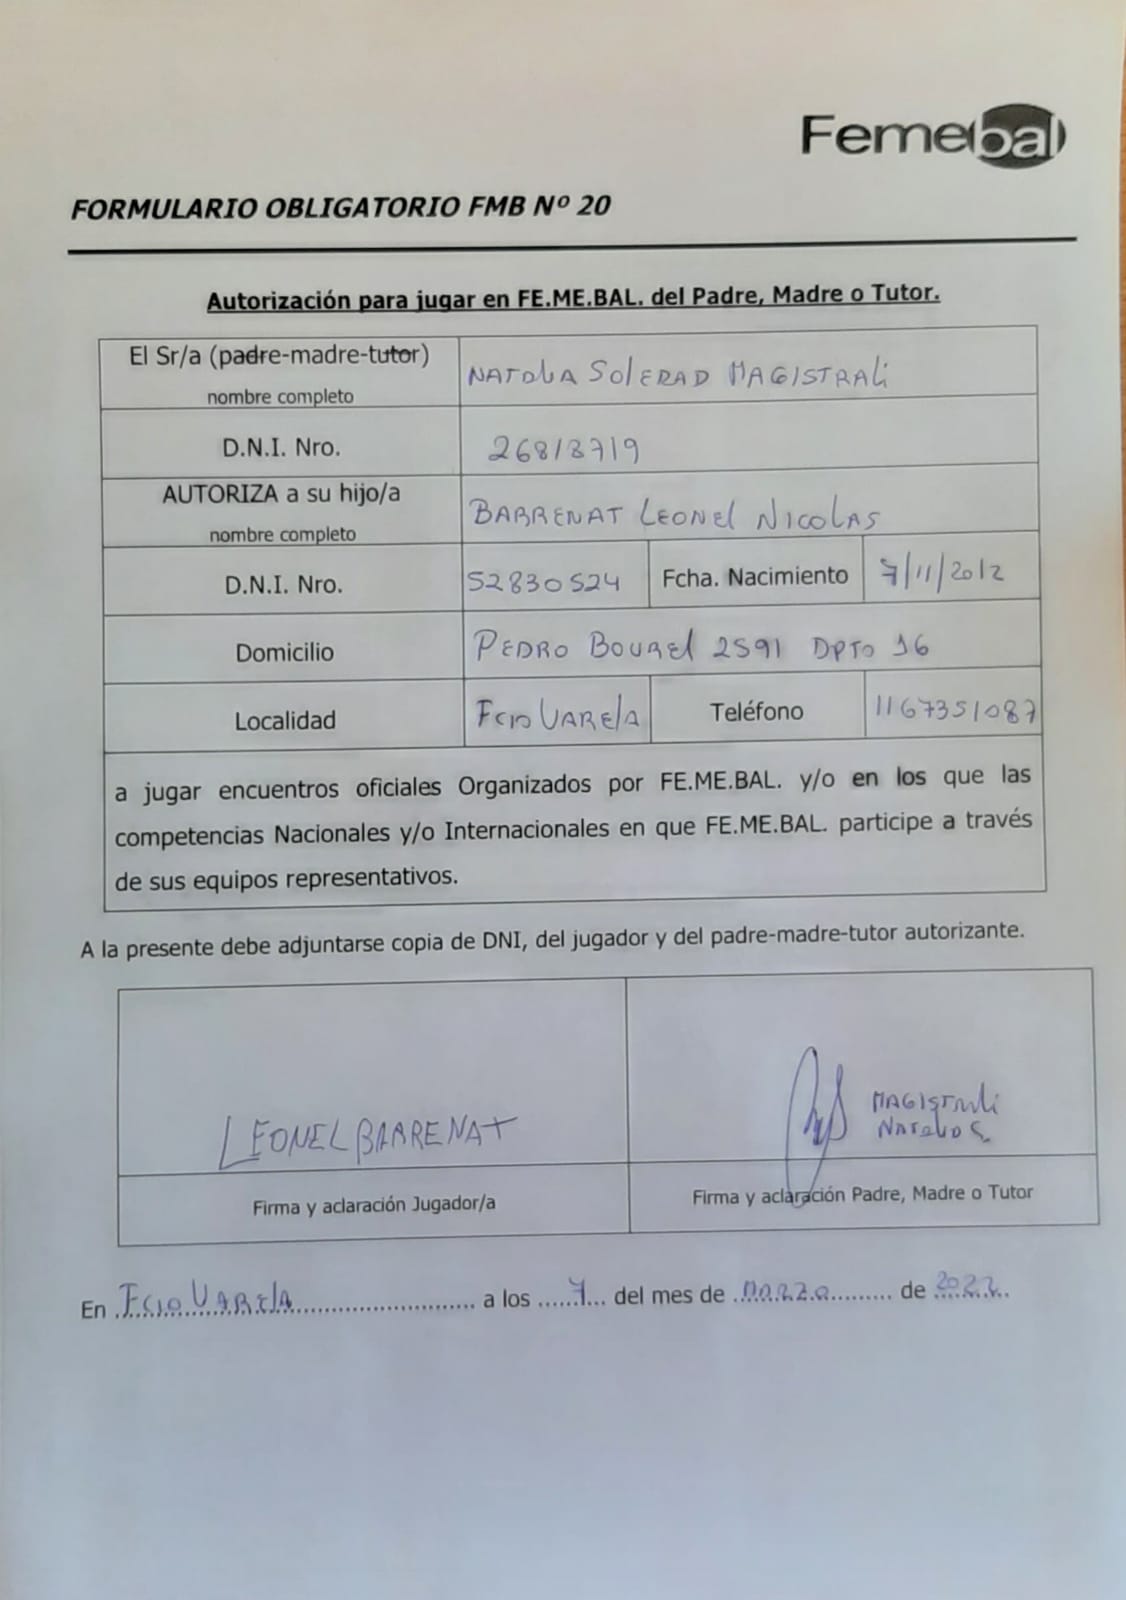 Femebal
FORMULARIO OBLIGATORIO FMB Nº 20
Autorización para jugar en FE.ME.BAL. del Padre, Madre o Tutor.
El Sr/a (padre-madre-tutor)
nombre completo
NATALIA SOLEDAD MAGISTRALI
D.N.I. Nro.
26818719
AUTORIZA a su hijo/a
nombre completo
BARRENAT LEONEL NICOLAS
D.N.I. Nro. 52830524 Fcha. Nacimiento 7/11/2012
Domicilio PEDRO BOUREL 2591 DPTO 16
Localidad Fcio VARELA Teléfono 1167351087
a jugar encuentros oficiales Organizados por FE.ME.BAL. y/o en los que las
competencias Nacionales y/o Internacionales en que FE.ME.BAL. participe a través
de sus equipos representativos.
A la presente debe adjuntarse copia de DNI, del jugador y del padre-madre-tutor autorizante.
LEONEL BARRENAT
MAGISTRALI
Firma y aclaración Jugador/a
Firma y aclaración Padre, Madre o Tutor
En Fcio VARELA a los 7 del mes de MARZO de 2022